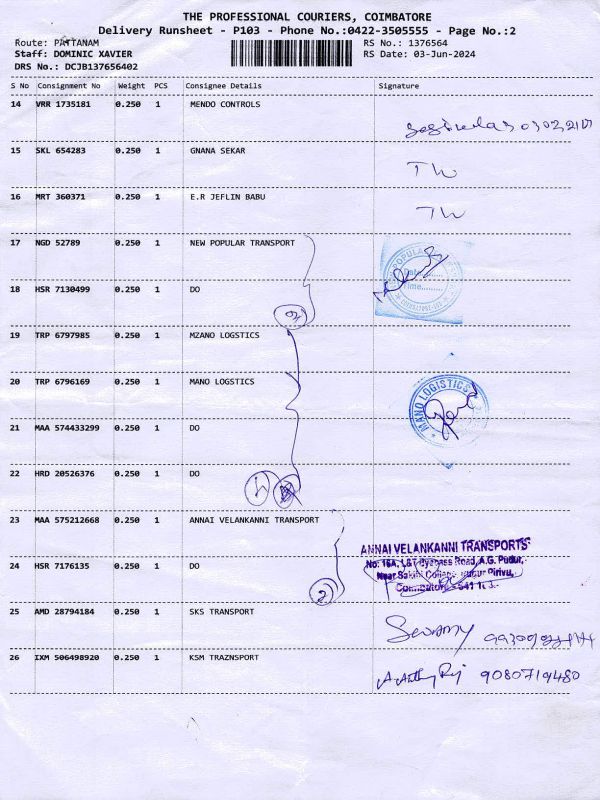 THE PROFESSIONAL COURIERS, COIMBATORE
Delivery Runsheet - P103 - Phone No.:0422-3505555 - Page No.:2
Route: PATTANAM RS No.: 1376564
Staff: DOMINIC XAVIER RS Date: 03-Jun-2024
DRS No.: DCJB137656402
S No Consignment No Weight PCS Consignee Details Signature
14 VRR 1735181 0.250 1 MENDO CONTROLS
15 SKL 654283 0.250 1 GNANA SEKAR
16 MRT 360371 0.250 1 E.R JEFLIN BABU
17 NGD 52789 0.250 1 NEW POPULAR TRANSPORT
Date
Time
18 HSR 7130499 0.250 1 DO
19 TRP 6797985 0.250 1 MZANO LOGSTICS
20 TRP 6796169 0.250 1 MANO LOGSTICS
MANO LOGISTICS
21 MAA 574433299 0.250 1 DO
22 HRD 20526376 0.250 1 DO
23 MAA 575212668 0.250 1 ANNAI VELANKANNI TRANSPORT
ANNAI VELANKANNI TRANSPORTS
No: 16A, L&T Byepass Road, A.G. Pudur,
24 HSR 7176135 0.250 1 DO
Pirivu,
2
25 AMD 28794184 0.250 1 SKS TRANSPORT
26 IXM 506498920 0.250 1 KSM TRAZNSPORT
9080719480